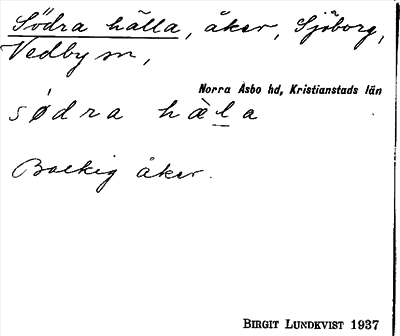 Södra hälla, åker, Sjöborg,
Vedby sn,
Norra Åsbo hd, Kristianstads län
sødra hæ̀l̲a
Backig åker.
BIRGIT LUNDKVIST 1937